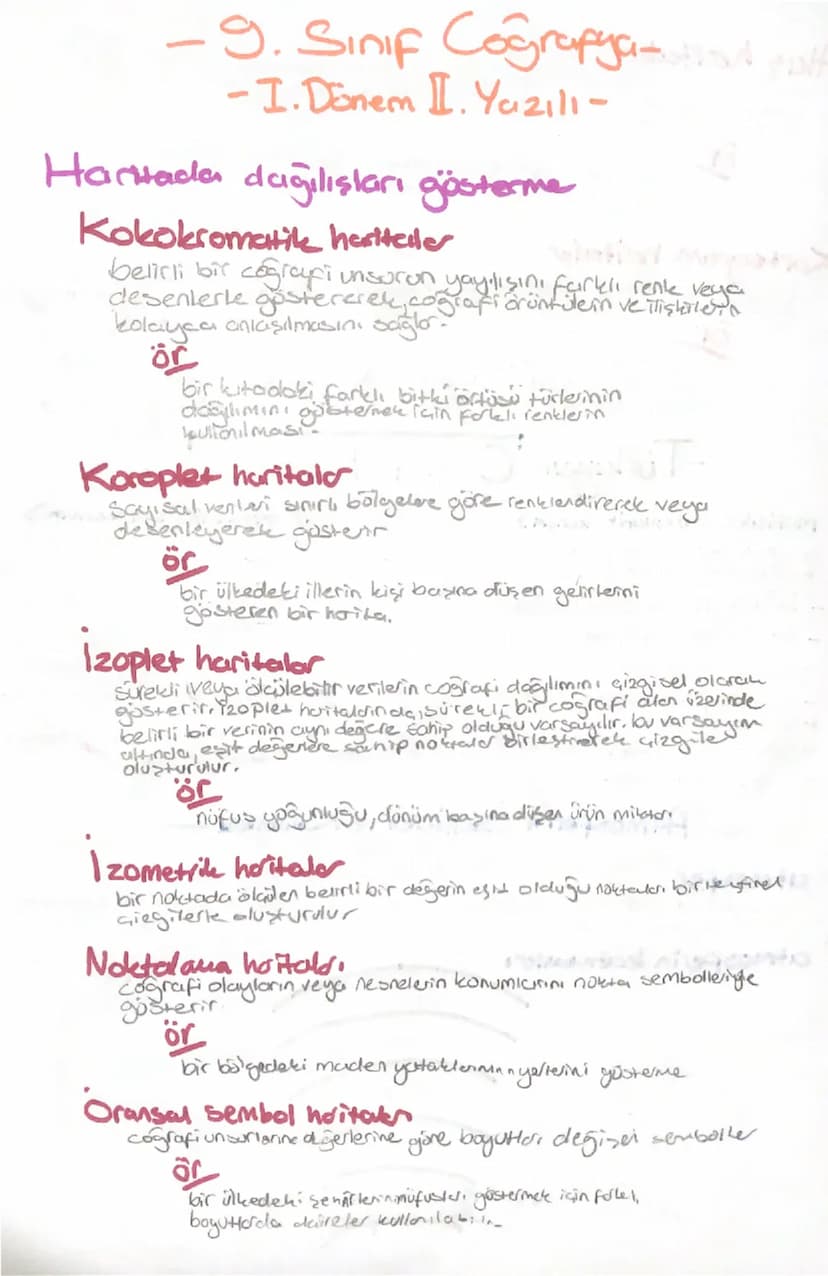 - 9. Sınıf Coğrafya -
- I. Dönem II. Yazılı -
Haritada dağılışları gösterme
Kokokromatik haritalar
belirli bir coğrafi unsurun yayılışını farklı renk veya
desenlerle göstererek, coğrafi örüntülerin ve ilişkilerin
kolayca anlaşılmasını sağlar.
ör
bir kıtadaki farklı bitki örtüsü türlerinin
dağılımını göstermek için farklı renklerin
kullanılması.
Koroplet haritalar
Sayısal verileri sınırlı bölgelere göre renklendirerek veya
desenleyerek gösterir
ör
bir ülkedeki illerin kişi başına düşen gelirlerini
gösteren bir harita.
İzoplet haritalar
Sürekli veya ölçülebilir verilerin coğrafi dağılımını çizgisel olarak
gösterir. İzoplet haritalarında, sürekli bir coğrafi alan üzerinde
belirli bir verinin aynı değere sahip olduğu varsayılır. bu varsayım
altında, eşit değerlere sahip noktalar birleştirerek çizgiler
oluşturulur.
ör
nüfus yoğunluğu, dönüm başına düşen ürün miktarı
İzometrik haritalar
bir noktada ölçülen belirli bir değerin eşit olduğu noktaları birleştiren
çizgilerle oluşturulur
Noktalama haritaları
coğrafi olayların veya nesnelerin konumlarını nokta sembolleriyle
gösterir
ör
bir bölgedeki maden yataklarının yerlerini gösterme
Oransal sembol haritaları
coğrafi unsurların değerlerine göre boyutları değişen semboller
ör
bir ülkedeki şehirlerin nüfusları göstermek için farklı
boyutlarda daireler kullanılabilir.